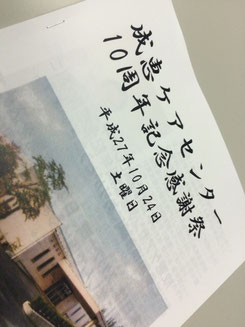 成恵ケアセンター
10周年記念感謝祭
平成27年10月24日
土曜日